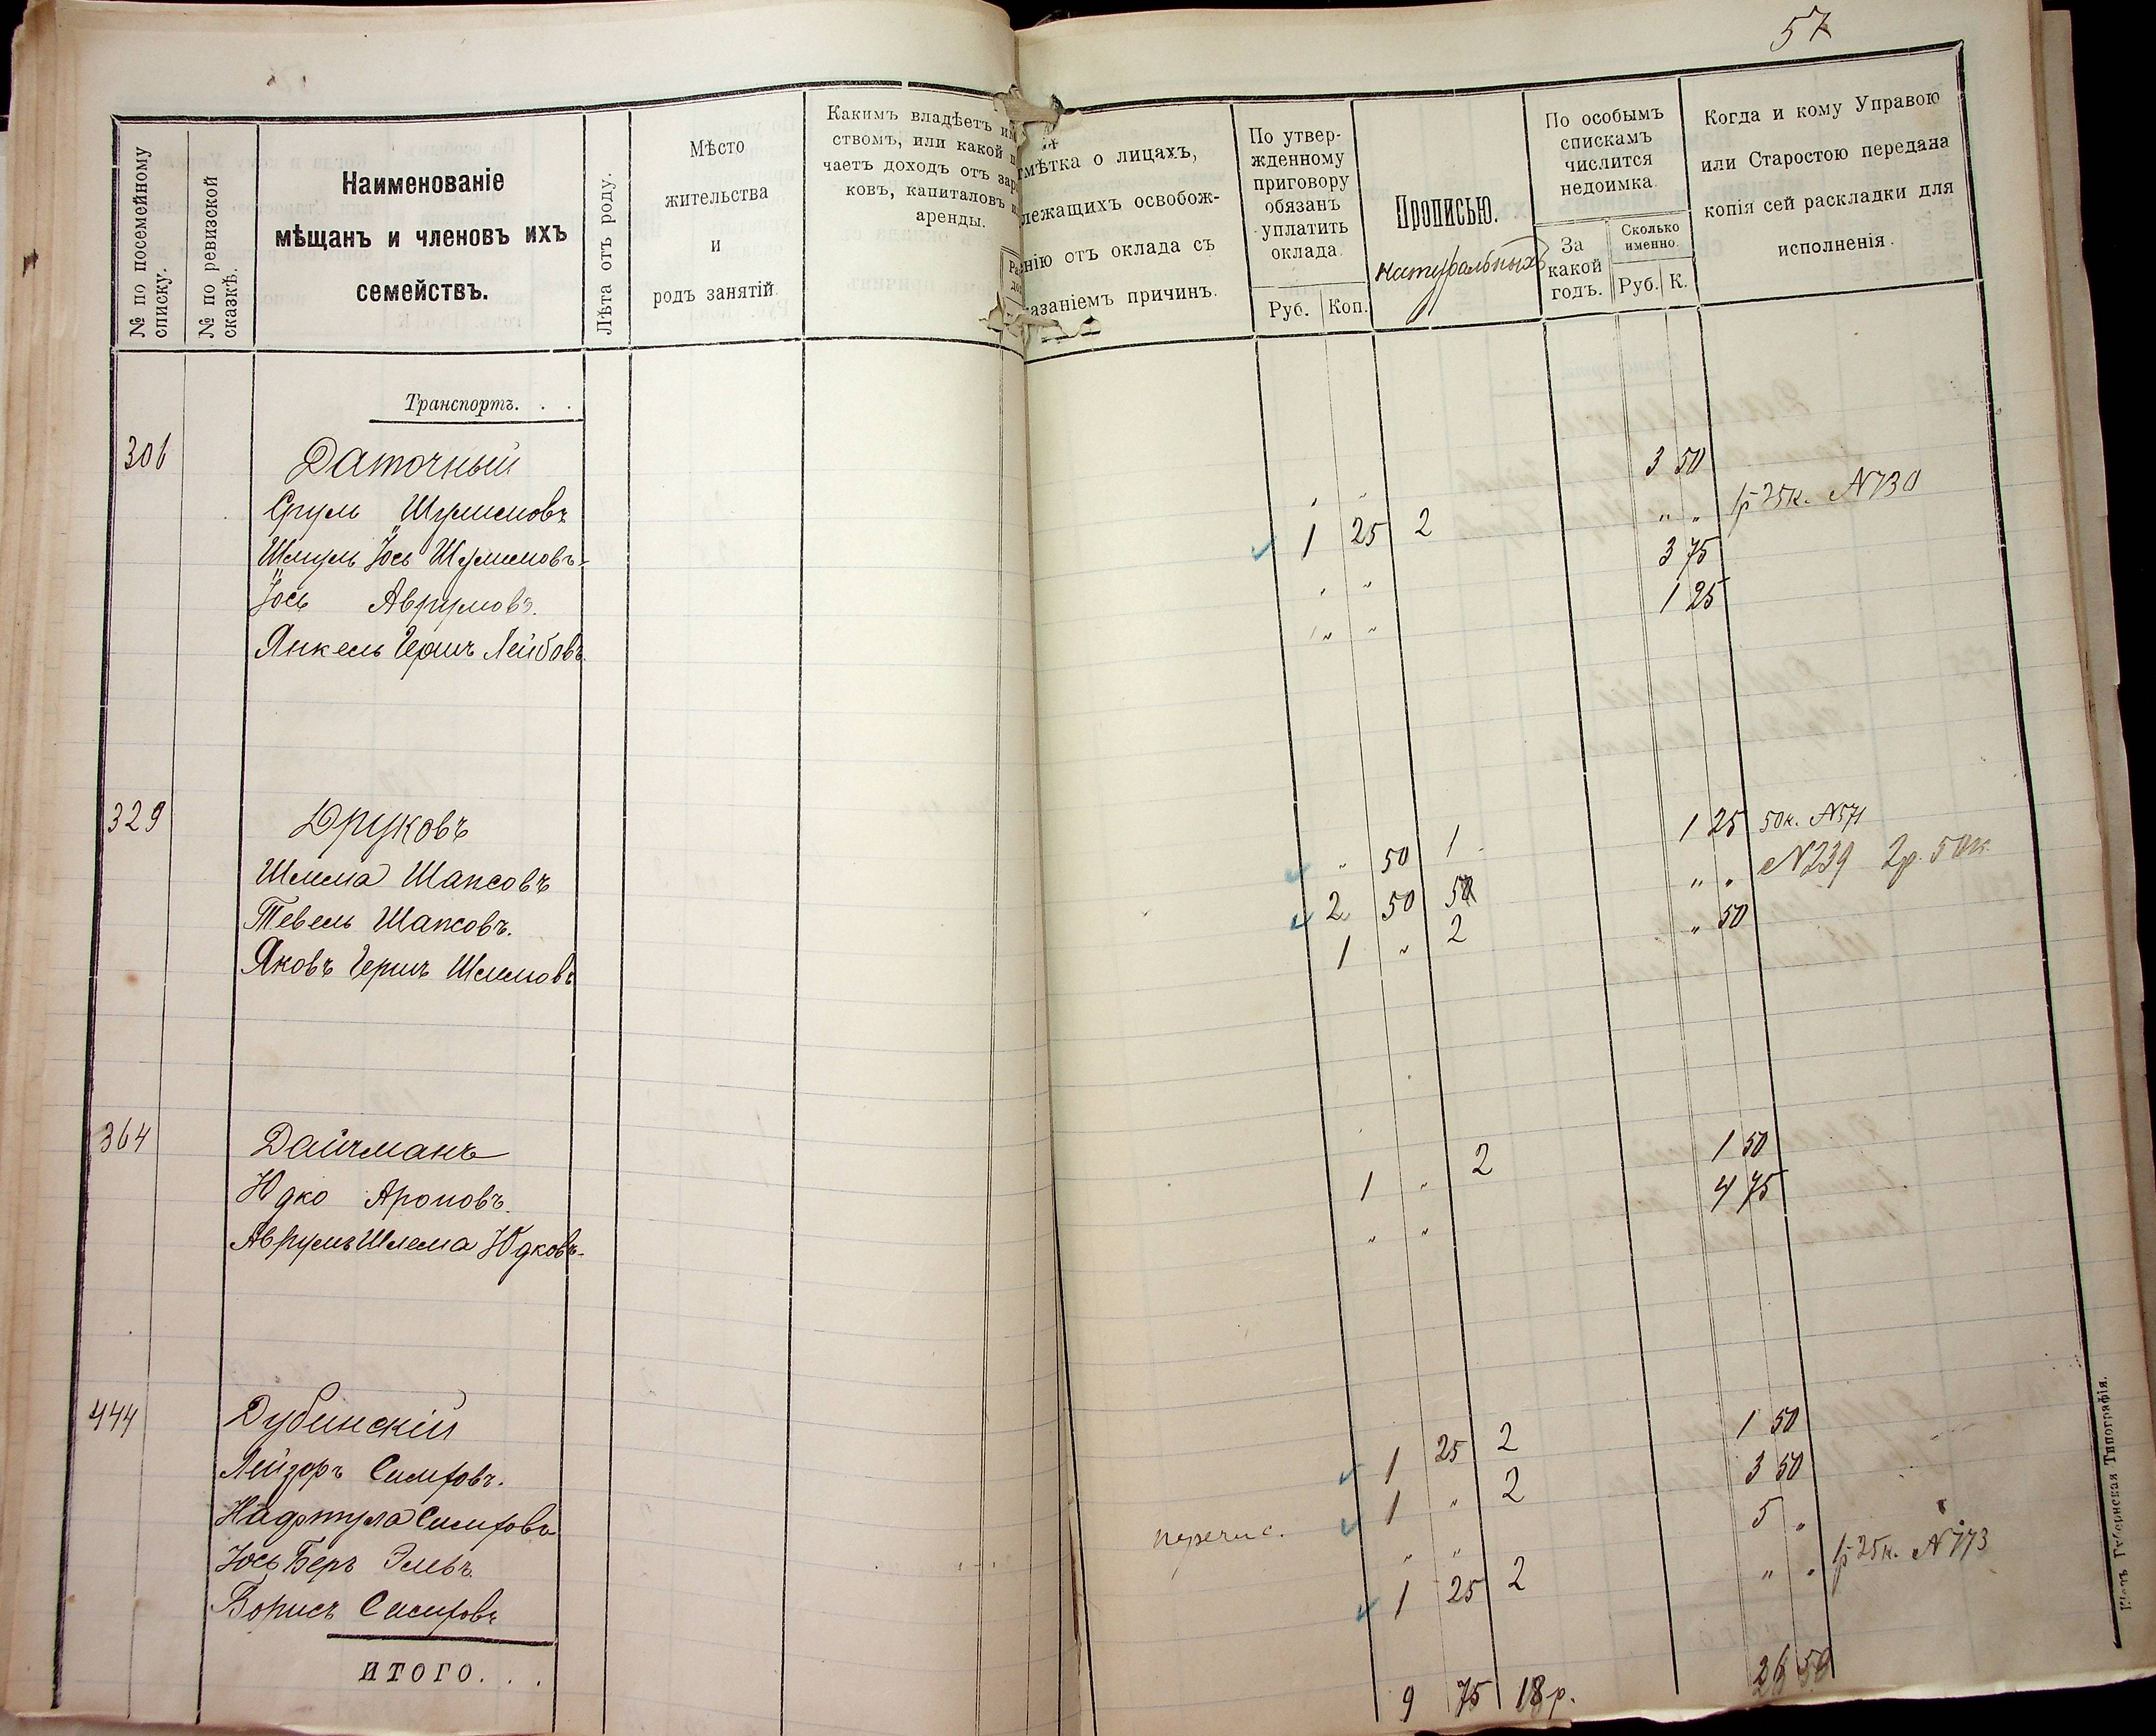 57
№ по посемейному списку.
№ по ревизской сказкѣ.
Наименованіе
мѣщанъ и членовъ ихъ
семействъ.
Лѣта отъ роду.
Мѣсто
жительства
и
родъ занятій
Какимъ владѣетъ им
ствомъ, или какой п
чаетъ доходъ отъ зар
ковъ, капиталовъ и
аренды.
мѣтка о лицахъ,
лежащихъ освобож-
нію отъ оклада съ
азаніемъ причинъ.
По утвер-
жденному
приговору
обязанъ
уплатить
оклада.
Руб. Коп.
Прописью.
натуральныхъ
По особымъ
спискамъ
числится
недоимка.
За
какой
годъ.
Сколько
именно.
Руб. К.
Когда и кому Управою
или Старостою передана
копія сей раскладки для
исполненія.
Транспортъ. . .
306 Даточный
Сруль Шулимовъ „ „ 3 50
Шмуль Іось Шулимовъ 1 25 2 „ „ 1р 25к. N730
Іось Аврумовъ. „ „ 3 75
Янкель Гершъ Лейбовъ „ „ 1 25
329 Друковъ
Шлема Шапсовъ „ 50 1 1 25 50к. N571
Тевель Шапсовъ. 2 50 5 „ „ N239 2р. 50к
Яковъ Гершъ Шлемовъ 1 „ 2 „ 50
364 Дайчманъ
Юдко Ароновъ. 1 „ 2 1 50
Аврумъ Шлема Юдковъ „ „ 4 75
444 Дубинскій
Лейзоръ Симховъ. 1 25 2 1 50
Нафтула Симховъ 1 „ 2 3 50
Іось Беръ Эльевъ перечис. „ „ 5 „
Борисъ Симховъ 1 25 2 „ „ 1р 25к. N773
ИТОГО. . . 9 75 18р. 26 50
Кіевъ Губернская Типографія.